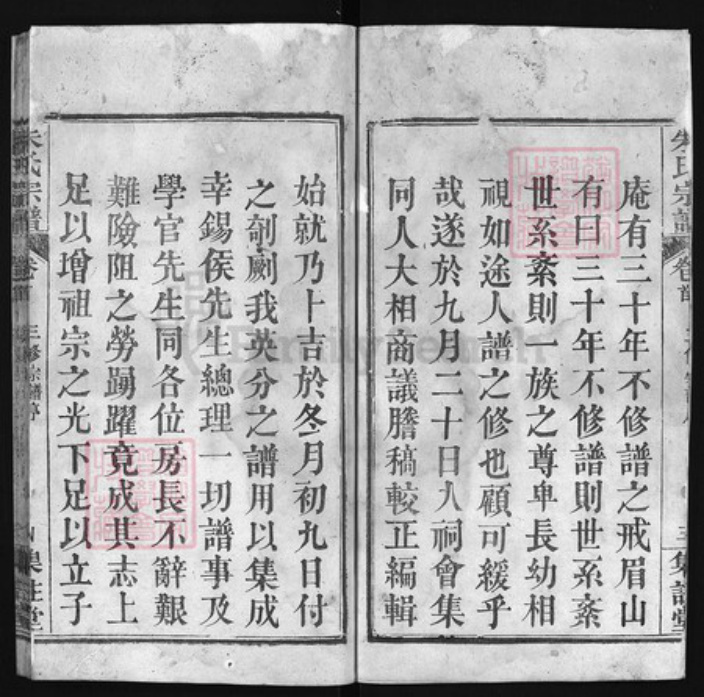 庵有三十年不修譜之戒眉山
有曰三十年不修譜則世系紊
世系紊則一族之尊卑長幼相
視如途人譜之修也顧可緩乎
哉遂於九月二十日入祠會集
同人大相商議謄稿較正編輯
始就乃卜吉於冬月初九日付
之剞劂我英分之譜用以集成
幸錫侯先生總理一切譜事及
學官先生同各位房長不辭艱
難險阻之勞踴躍竟成其志上
足以增祖宗之光下足以立子
朱氏宗譜
卷首
三修宗譜序
FamilySearch